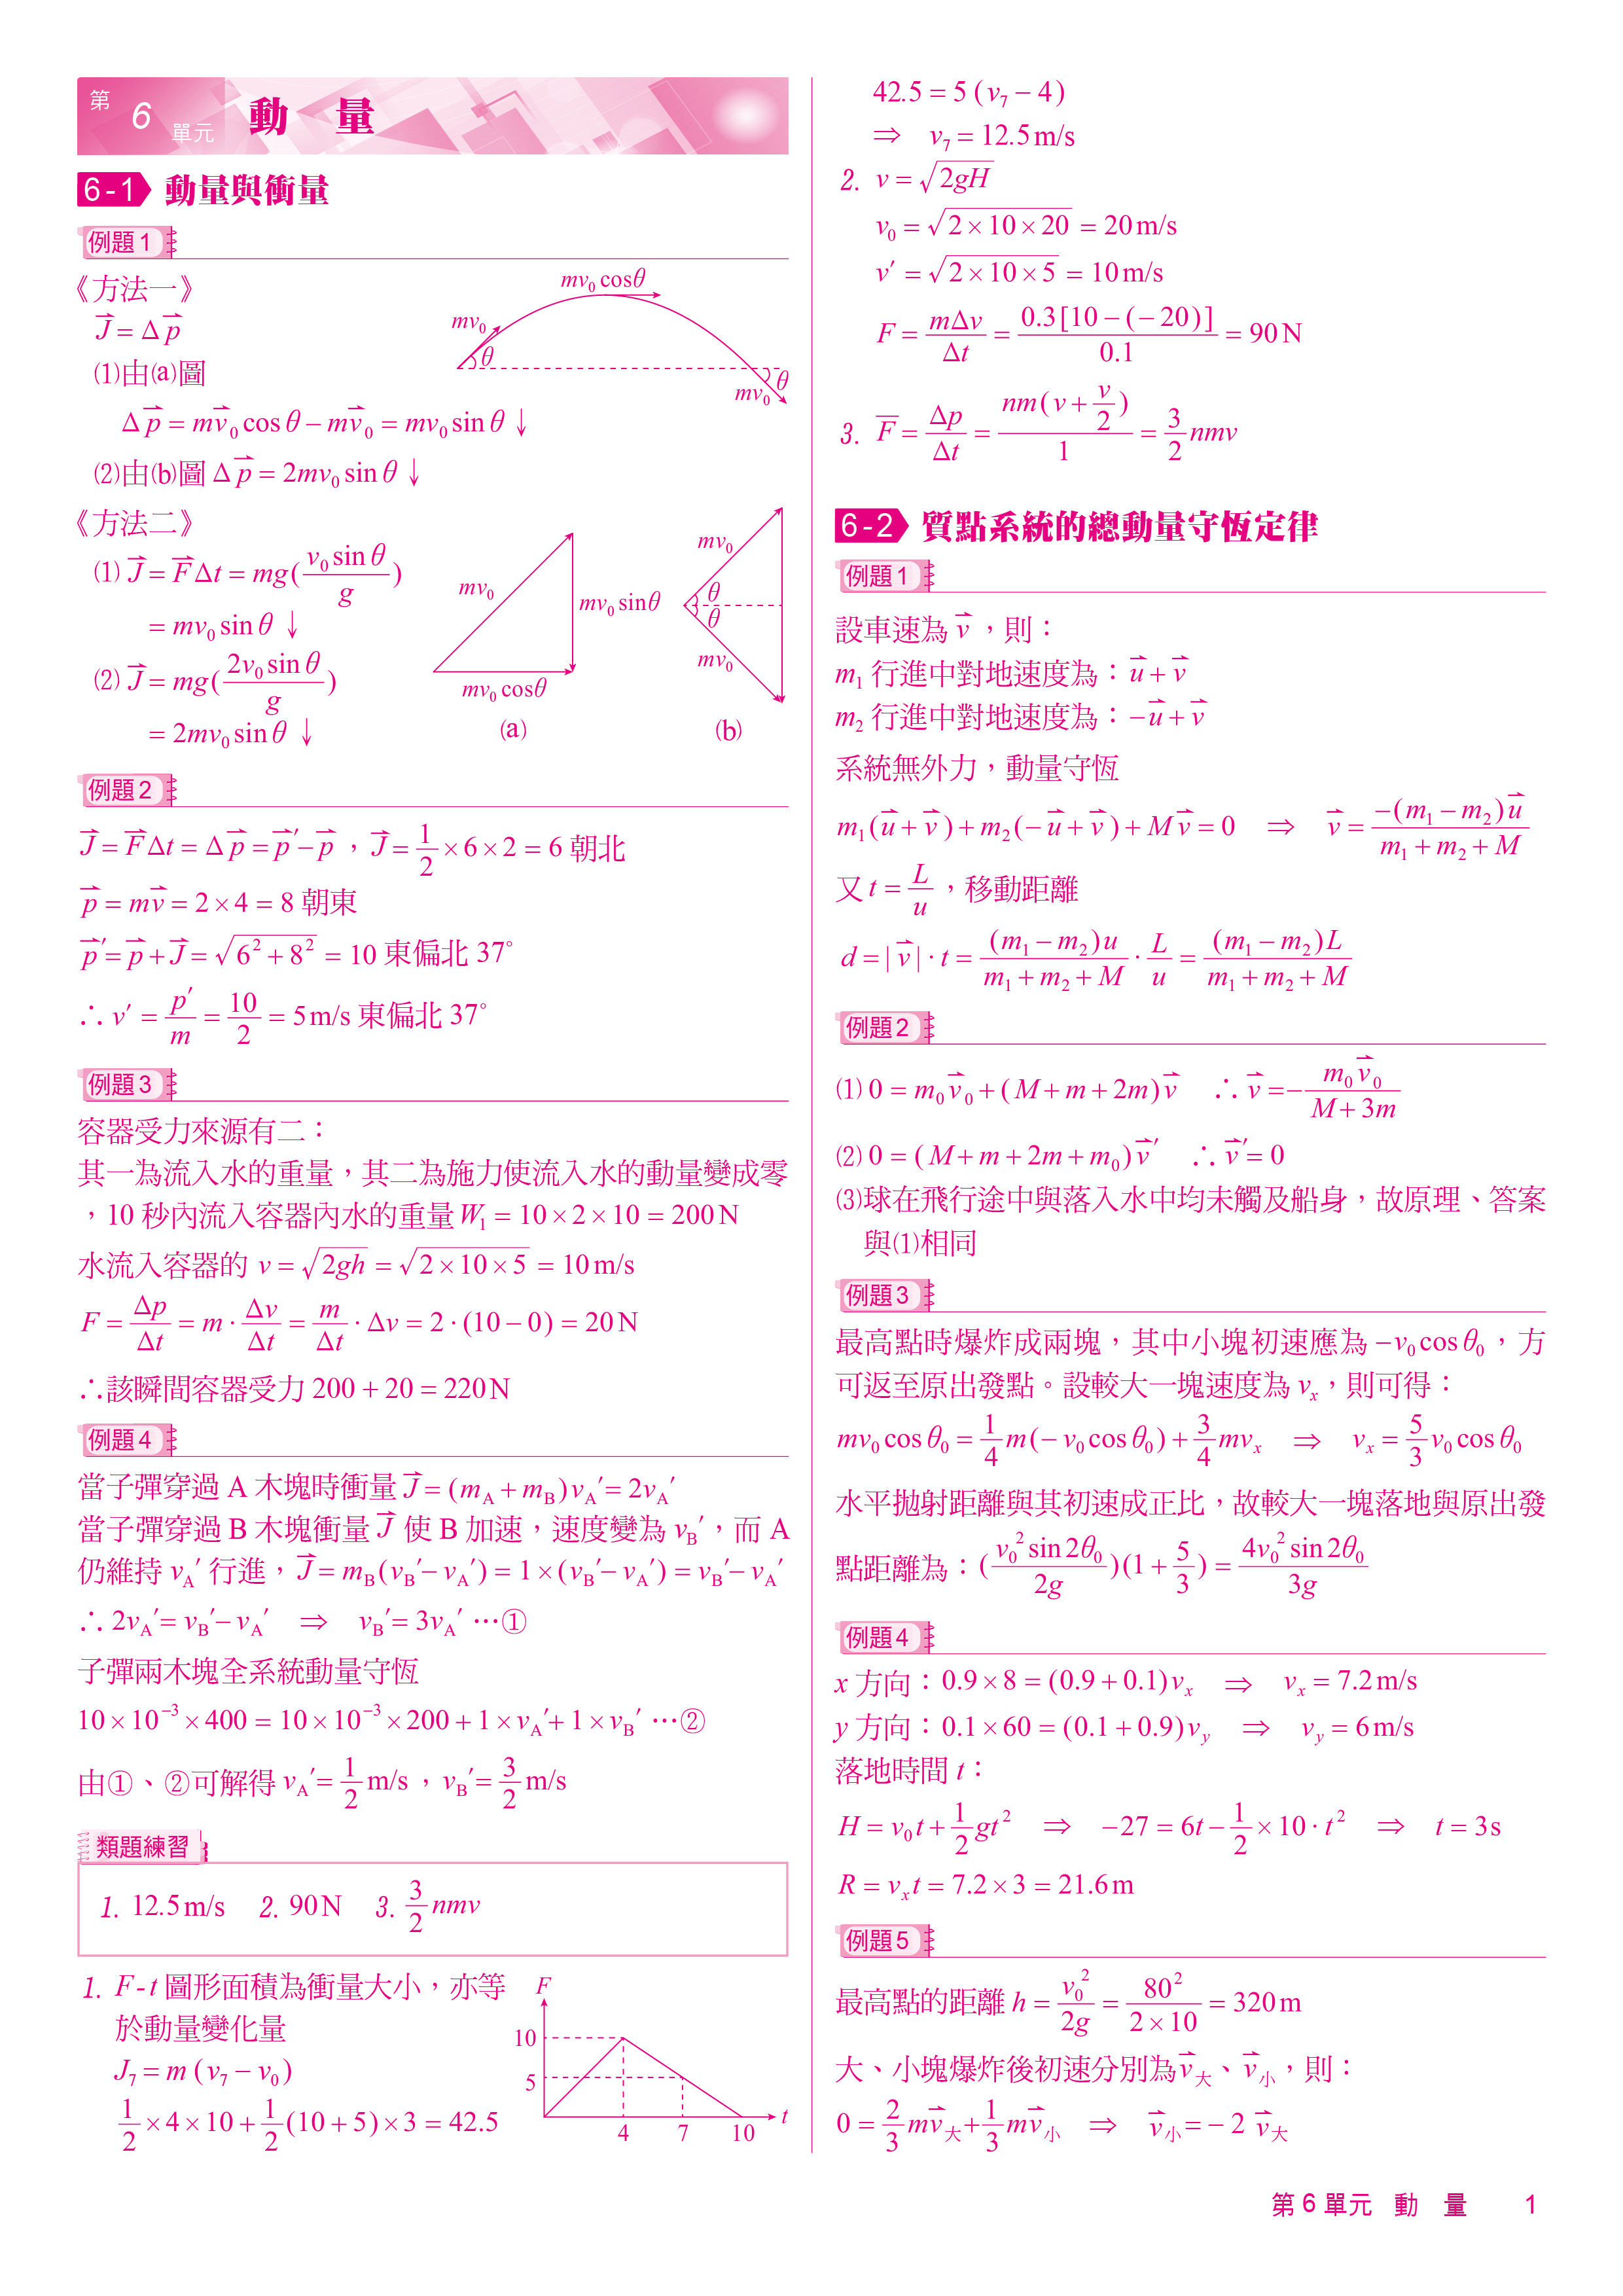 第6單元 動 量
6-1 動量與衝量
例題1
《方法一》
$\vec{J} = \Delta\vec{p}$
⑴由⒜圖
$\Delta\vec{p} = m\vec{v}_0\cos\theta - m\vec{v}_0 = mv_0\sin\theta\downarrow$
⑵由⒝圖 $\Delta\vec{p} = 2mv_0\sin\theta\downarrow$
mv₀cosθ
mv₀
θ
θ
mv₀
《方法二》
⑴ $\vec{J} = \vec{F}\Delta t = mg(\frac{v_0\sin\theta}{g})$
$= mv_0\sin\theta\downarrow$
⑵ $\vec{J} = mg(\frac{2v_0\sin\theta}{g})$
$= 2mv_0\sin\theta\downarrow$
mv₀
mv₀sinθ
mv₀cosθ
⒜
mv₀
θ
θ
mv₀
⒝
例題2
$\vec{J} = \vec{F}\Delta t = \Delta\vec{p} = \vec{p}' - \vec{p}$，$\vec{J} = \frac{1}{2}\times 6\times 2 = 6$ 朝北
$\vec{p} = m\vec{v} = 2\times 4 = 8$ 朝東
$\vec{p}' = \vec{p} + \vec{J} = \sqrt{6^2+8^2} = 10$ 東偏北 37°
∴ $v' = \frac{p'}{m} = \frac{10}{2} = 5$ m/s 東偏北 37°
例題3
容器受力來源有二：
其一為流入水的重量，其二為施力使流入水的動量變成零
，10 秒內流入容器內水的重量 $W_1 = 10\times 2\times 10 = 200$ N
水流入容器的 $v = \sqrt{2gh} = \sqrt{2\times 10\times 5} = 10$ m/s
$F = \frac{\Delta p}{\Delta t} = m\cdot\frac{\Delta v}{\Delta t} = \frac{m}{\Delta t}\cdot\Delta v = 2\cdot(10-0) = 20$ N
∴該瞬間容器受力 200 + 20 = 220 N
例題4
當子彈穿過 A 木塊時衝量 $\vec{J} = (m_A + m_B)v_A' = 2v_A'$
當子彈穿過 B 木塊衝量 $\vec{J}$ 使 B 加速，速度變為 $v_B'$，而 A
仍維持 $v_A'$ 行進，$\vec{J} = m_B(v_B' - v_A') = 1\times(v_B' - v_A') = v_B' - v_A'$
∴ $2v_A' = v_B' - v_A'$ ⇒ $v_B' = 3v_A'$ …①
子彈兩木塊全系統動量守恆
$10\times 10^{-3}\times 400 = 10\times 10^{-3}\times 200 + 1\times v_A' + 1\times v_B'$ …②
由①、②可解得 $v_A' = \frac{1}{2}$ m/s，$v_B' = \frac{3}{2}$ m/s
類題練習
1. 12.5 m/s 2. 90 N 3. $\frac{3}{2}nmv$
1. F-t 圖形面積為衝量大小，亦等
於動量變化量
$J_7 = m(v_7 - v_0)$
$\frac{1}{2}\times 4\times 10 + \frac{1}{2}(10+5)\times 3 = 42.5$
F
10
5
4 7 10 t
$42.5 = 5(v_7 - 4)$
⇒ $v_7 = 12.5$ m/s
2. $v = \sqrt{2gH}$
$v_0 = \sqrt{2\times 10\times 20} = 20$ m/s
$v' = \sqrt{2\times 10\times 5} = 10$ m/s
$F = \frac{m\Delta v}{\Delta t} = \frac{0.3[10-(-20)]}{0.1} = 90$ N
3. $\overline{F} = \frac{\Delta p}{\Delta t} = \frac{nm(v+\frac{v}{2})}{1} = \frac{3}{2}nmv$
6-2 質點系統的總動量守恆定律
例題1
設車速為 $\vec{v}$，則：
$m_1$ 行進中對地速度為：$\vec{u} + \vec{v}$
$m_2$ 行進中對地速度為：$-\vec{u} + \vec{v}$
系統無外力，動量守恆
$m_1(\vec{u}+\vec{v}) + m_2(-\vec{u}+\vec{v}) + M\vec{v} = 0$ ⇒ $\vec{v} = \frac{-(m_1-m_2)\vec{u}}{m_1+m_2+M}$
又 $t = \frac{L}{u}$，移動距離
$d = |\vec{v}|\cdot t = \frac{(m_1-m_2)u}{m_1+m_2+M}\cdot\frac{L}{u} = \frac{(m_1-m_2)L}{m_1+m_2+M}$
例題2
⑴ $0 = m_0\vec{v}_0 + (M+m+2m)\vec{v}$ ∴ $\vec{v} = -\frac{m_0\vec{v}_0}{M+3m}$
⑵ $0 = (M+m+2m+m_0)\vec{v}'$ ∴ $\vec{v}' = 0$
⑶球在飛行途中與落入水中均未觸及船身，故原理、答案
與⑴相同
例題3
最高點時爆炸成兩塊，其中小塊初速應為 $-v_0\cos\theta_0$，方
可返至原出發點。設較大一塊速度為 $v_x$，則可得：
$mv_0\cos\theta_0 = \frac{1}{4}m(-v_0\cos\theta_0) + \frac{3}{4}mv_x$ ⇒ $v_x = \frac{5}{3}v_0\cos\theta_0$
水平拋射距離與其初速成正比，故較大一塊落地與原出發
點距離為：$(\frac{v_0^2\sin 2\theta_0}{2g})(1+\frac{5}{3}) = \frac{4v_0^2\sin 2\theta_0}{3g}$
例題4
x 方向：$0.9\times 8 = (0.9+0.1)v_x$ ⇒ $v_x = 7.2$ m/s
y 方向：$0.1\times 60 = (0.1+0.9)v_y$ ⇒ $v_y = 6$ m/s
落地時間 t：
$H = v_0t + \frac{1}{2}gt^2$ ⇒ $-27 = 6t - \frac{1}{2}\times 10\cdot t^2$ ⇒ $t = 3$ s
$R = v_xt = 7.2\times 3 = 21.6$ m
例題5
最高點的距離 $h = \frac{v_0^2}{2g} = \frac{80^2}{2\times 10} = 320$ m
大、小塊爆炸後初速分別為 $\vec{v}_大$、$\vec{v}_小$，則：
$0 = \frac{2}{3}m\vec{v}_大 + \frac{1}{3}m\vec{v}_小$ ⇒ $\vec{v}_小 = -2\vec{v}_大$
第 6 單元 動 量 1